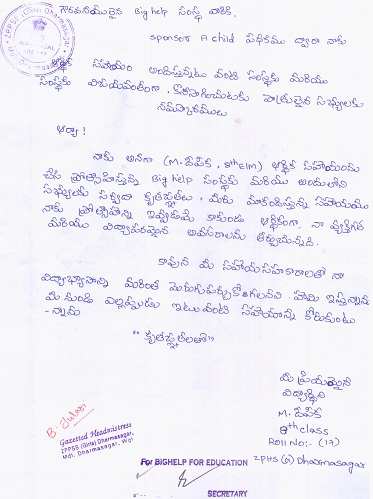 గౌరవనీయులైన Big help సంస్థ వారికి,
sponsor A child పథకము ద్వారా నాకు
ఆర్థిక సహాయం అందిస్తున్నటు వంటి సంస్థకు మరియు
సంస్థకు విజయవంతంగా, కొనసాగించుటకు పాత్రులైన సభ్యులకు
నమస్కారములు
ఆర్యా!
నాకు అనగా (M. దీపిక, 8th em) ఆర్థిక సహాయంను
చేసి ప్రోత్సహిస్తున్న Big help సంస్థకు మరియు అందులోని
సభ్యులకు సర్వదా కృతజ్ఞతలు. మీరు మాకందిస్తున్న సహాయము
నాకు ప్రోత్సాహాన్ని ఇవ్వడమే కాకుండా ఆర్థికంగా, నా వ్యక్తిగత
మరియు విద్యాపరమైన అవసరాలను తీర్చుచున్నది.
కావున మీ సహాయసహకారాలతో నా
విద్యాభ్యాసాన్ని మరింత మెరుగుపర్చుకోగలనని హామీ ఇస్తున్నాను
మీ నుండి ఎల్లప్పుడు ఇటువంటి సహాయాన్ని కోరుకుంటు
-న్నాను
"కృతజ్ఞతలతో"
మీ ప్రియమైన
విద్యార్థిని
M. దీపిక
8th class
Roll No:- (17)
ZPHS (G) Dharmasagar
Gazetted Headmistress
ZPPSS (Girls) Dharmasagar,
Mdl. Dharmasagar, Wgl
For BIGHELP FOR EDUCATION
SECRETARY